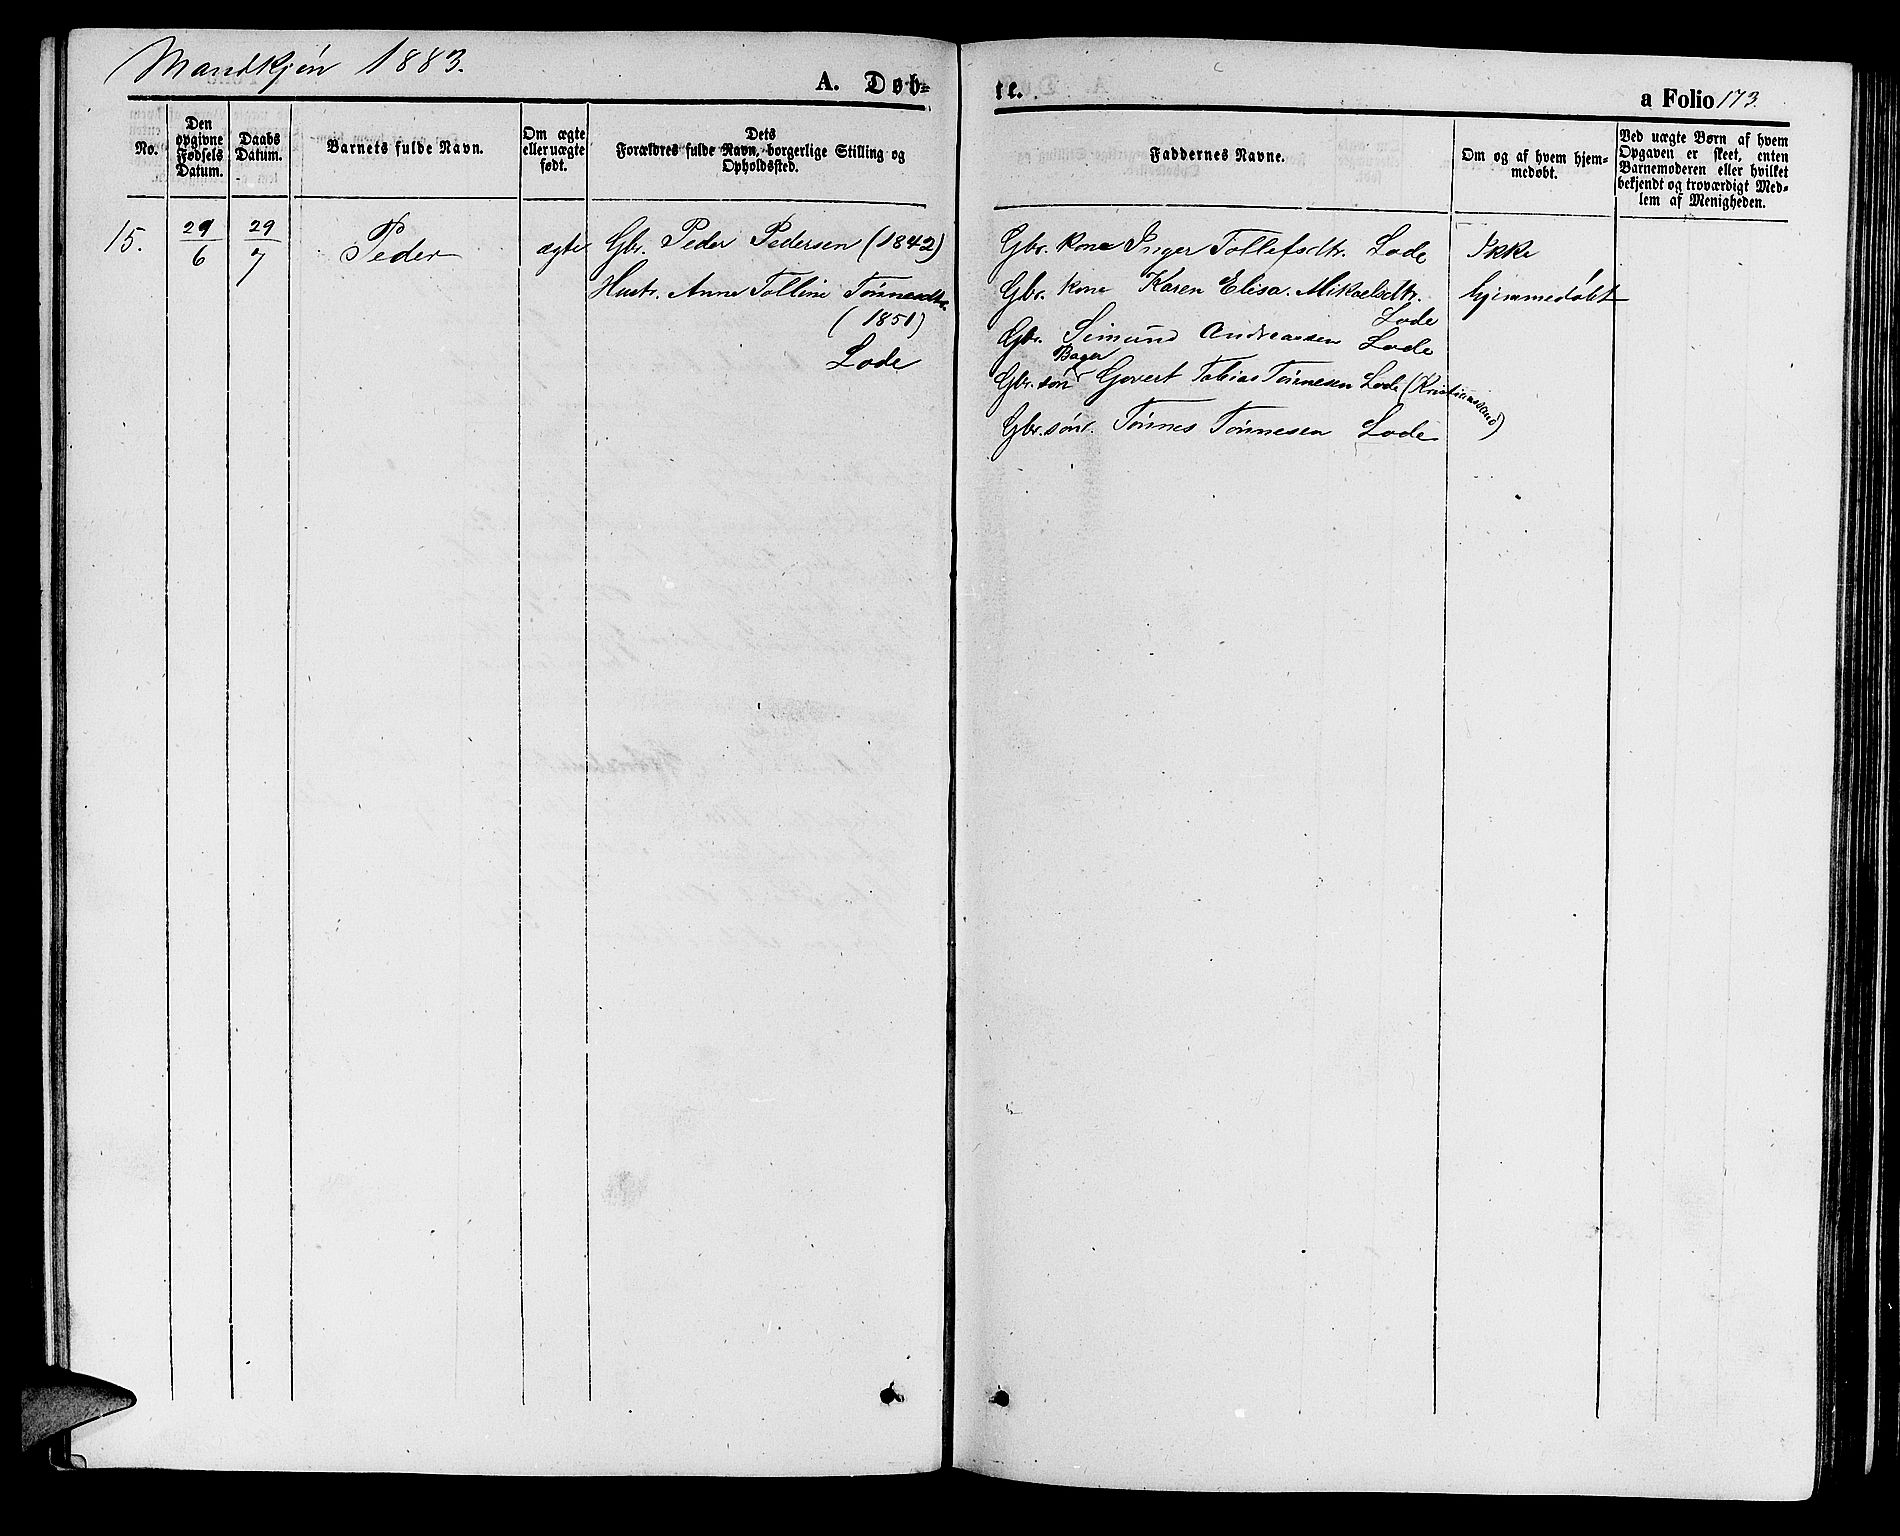 Mandkjøn 1883.
A. Døb-
te.
a Folio 173
No.
Den opgivne Fødsels Datum.
Daabs Datum.
Barnets fulde Navn.
Om ægte eller uægte født.
Dets Forældres fulde Navn, borgerlige Stilling og Opholdssted.
Faddernes Navne.
Om og af hvem hjem-
medøbt.
Ved uægte Børn af hvem
Opgaven er skeet, enten
Barnemoderen eller hvilket
bekjendt og troværdigt Med-
lem af Menigheden.
15.
29/6
29/7
Peder
ægte
Gbr. Peder Pedersen (1842)
Hustr. Anne Tolline Tønnesdtr.
(1851)
Lode
Gbr. kone Inger Tollefsdtr. Lode
Gbr. kone Karen Elisa. Mikaelsdtr.
Lode
Gbr. Simund Andreassen Lode
Bager
Gbr. søn Govert Tobias Tønnesen Lode (Kristianssand)
Gbr. søn. Tønnes Tønnesen Lode
Ikke
hjemmedøbt